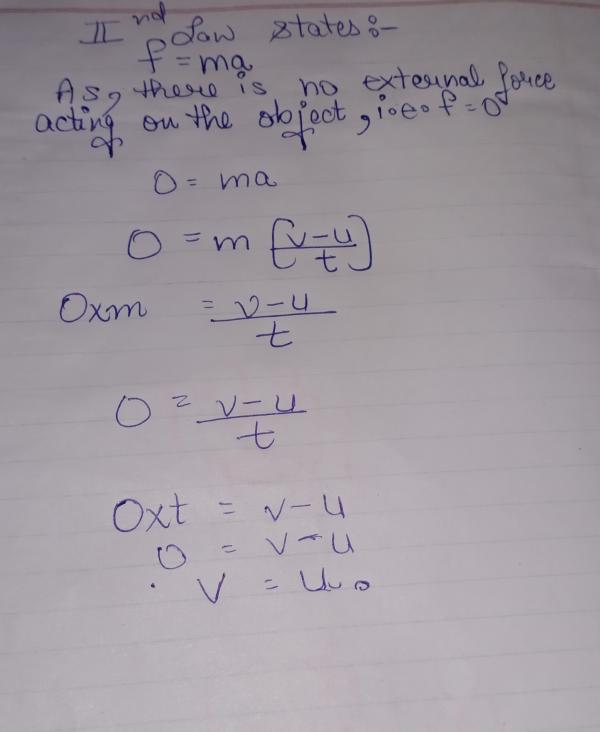 IInd Law states :-
f = ma
As, there is no external force
acting on the object, i.e. f = 0
0 = ma
0 = m [v-u/t]
0xm = v-u/t
0 = v-u/t
0xt = v-u
0 = v-u
v = u.